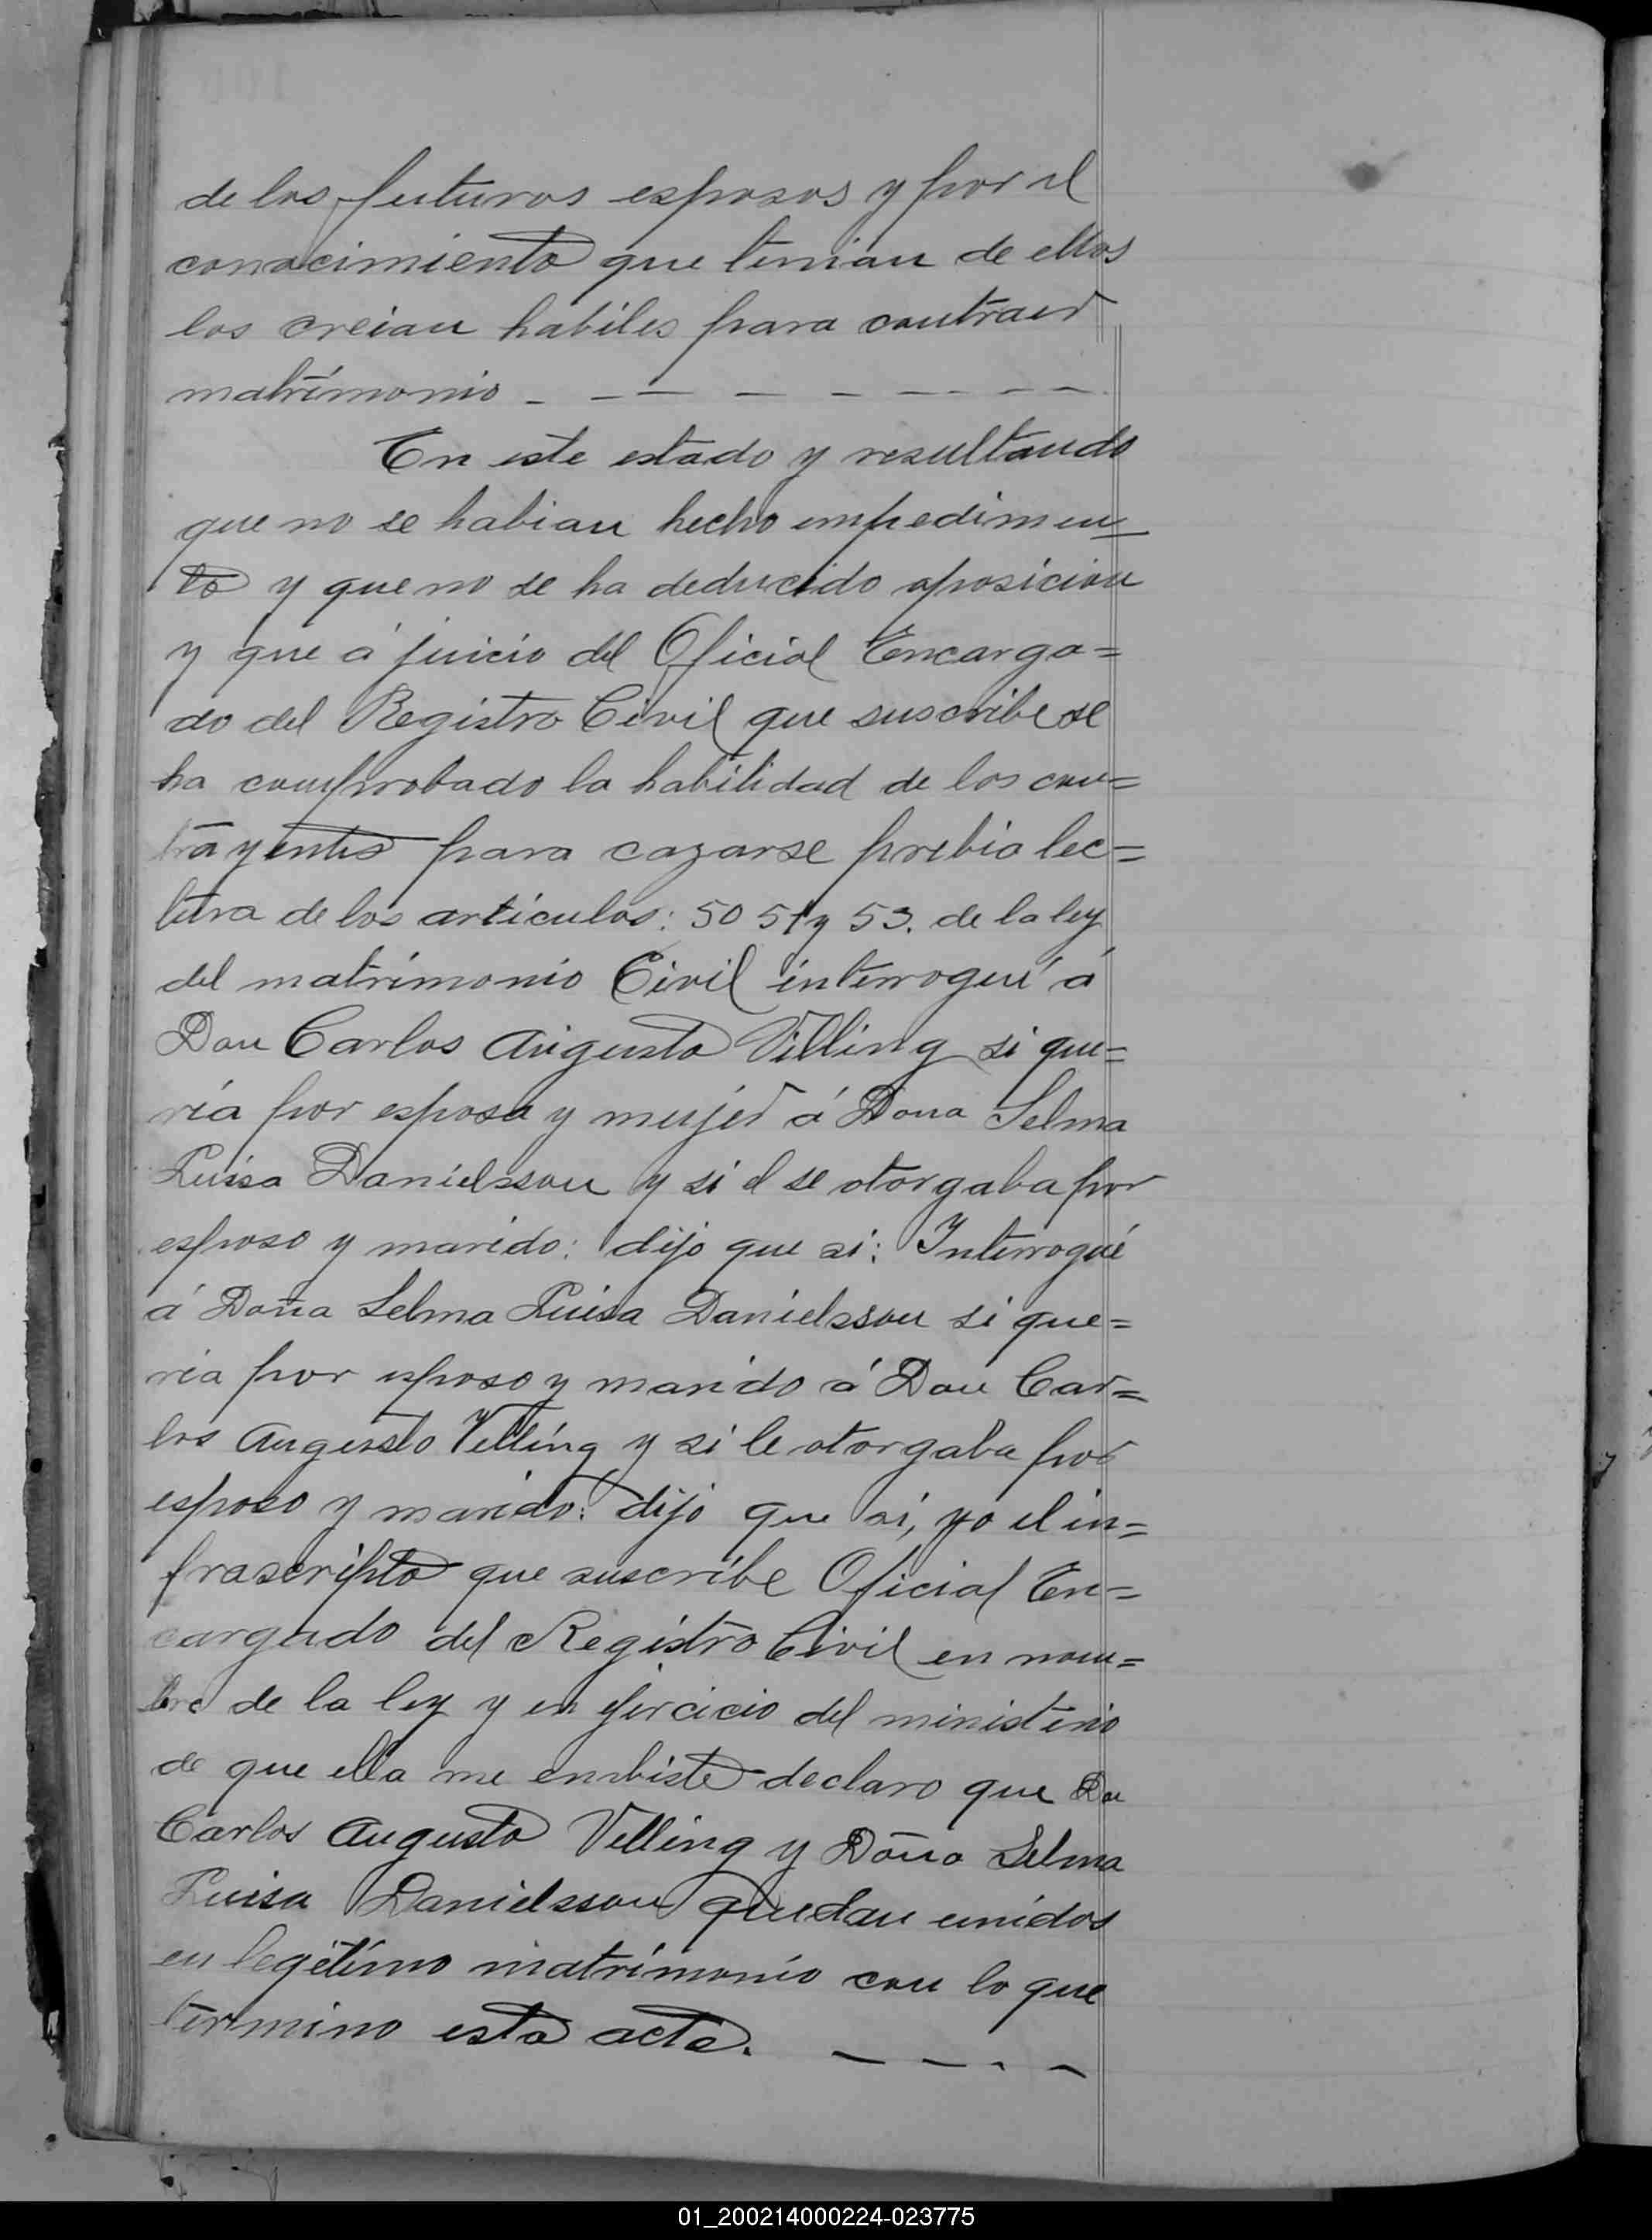 de los futuros esposos y por el
conocimiento que tenian de ellos
los creian habiles para contraer
matrimonio - - - - - - - - -
En este estado y resultando
que no se habian hecho empedimen-
to y que no se ha deducido oposicion
y que á juicio del Oficial Encarga=
do del Registro Civil que suscribe se
ha comprobado la habilidad de los con=
trayentes para cazarse prebia lec=
tura de los articulos: 50 51 y 53. de la ley
del matrimonio Civil interrogué á
Don Carlos Augusto Villing si que=
ría por esposa y mujer á Dona Selma
Luisa Danielsson y si el se otorgaba por
esposo y marido: dijo que si: Interrogué
á Doña Selma Luisa Danielsson si que=
ria por esposo y marido á Don Car=
los Augusto Velling y si le otorgaba por
esposo y marido: dijo que si, yo el in=
frascripto que suscribe Oficial En=
cargado del Registro Civil en nom=
bre de la ley y en ejercicio del ministerio
de que ella me enbiste declaro que Don
Carlos Augusto Velling y Doña Selma
Luisa Danielsson quedan unidos
en legétimo matrimonio con lo que
termino esta acta. - - - -
01_200214000224-023775